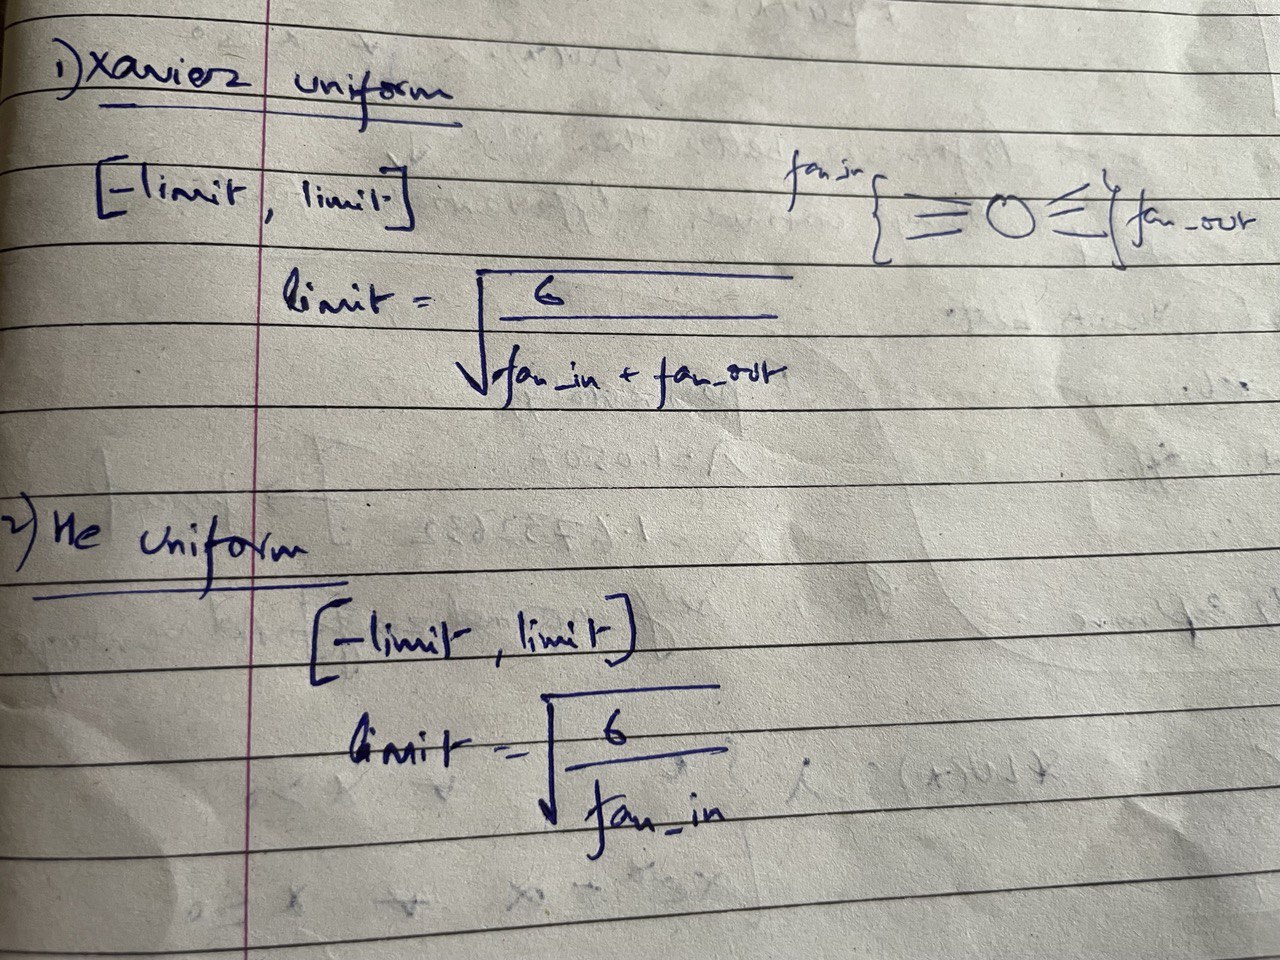 1) Xavier uniform
[-limit, limit]
fan in { } fan_out
limit = √(6 / (fan_in + fan_out))
2) He uniform
[-limit, limit]
limit = √(6 / fan_in)